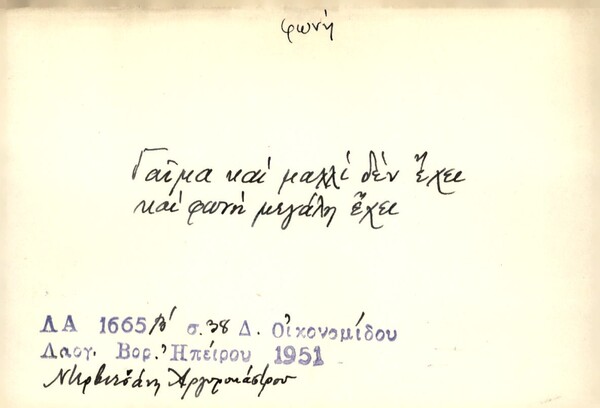 φωνή
Γαῖμα καί μαλλί δέν ἔχει
καί φωνή μεγάλη ἔχει
ΛΑ 1665/β' σ. 38 Δ. Οἰκονομίδου
Λαογ. Βορ. Ἠπείρου 1951
Ἀργυροκάστρου